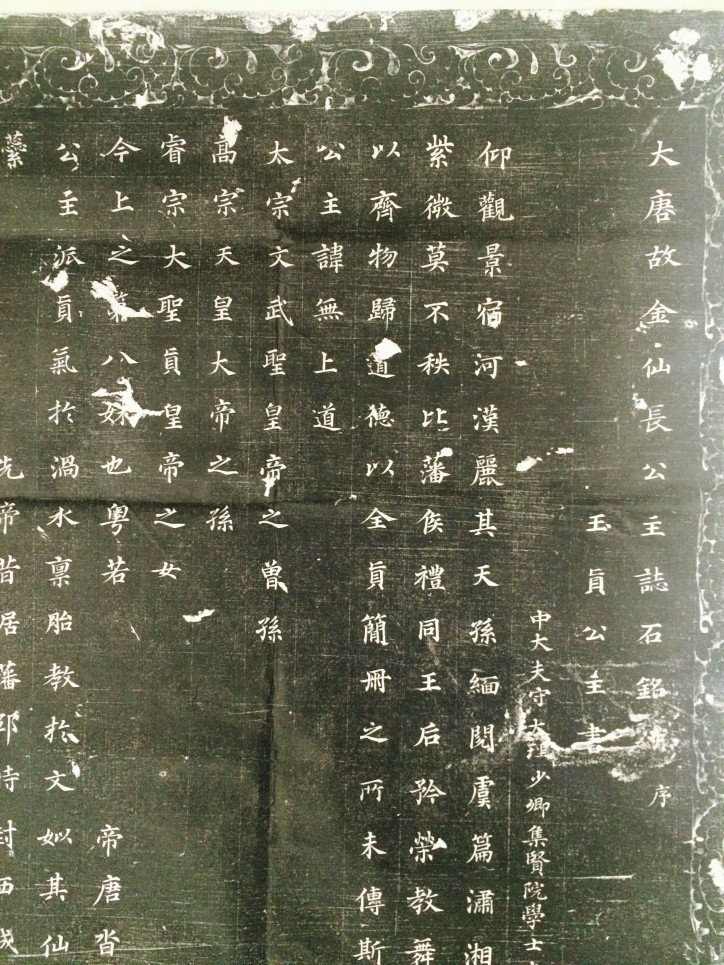 大唐故金仙長公主誌石銘并序
玉真公主書
中大夫守大理少卿集賢院學士
仰觀景宿河漢麗其天孫緬閱虞篇瀟湘
紫微莫不秩比藩侯禮同王后矜榮教舞
以齊物歸道德以全真簡冊之所未傳斯
公主諱無上道
太宗文武聖皇帝之曾孫
高宗天皇大帝之孫
睿宗大聖真皇帝之女
今上之第八妹也粵若 帝唐沓
公主派真氣於渦水稟胎教於文如其仙
蘂 先帝昔居藩邸時封西城